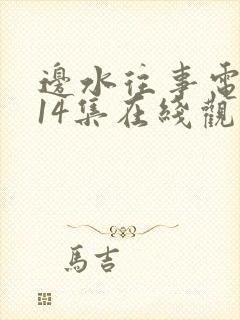 邊水往事電
14集在綫觀
馬吉